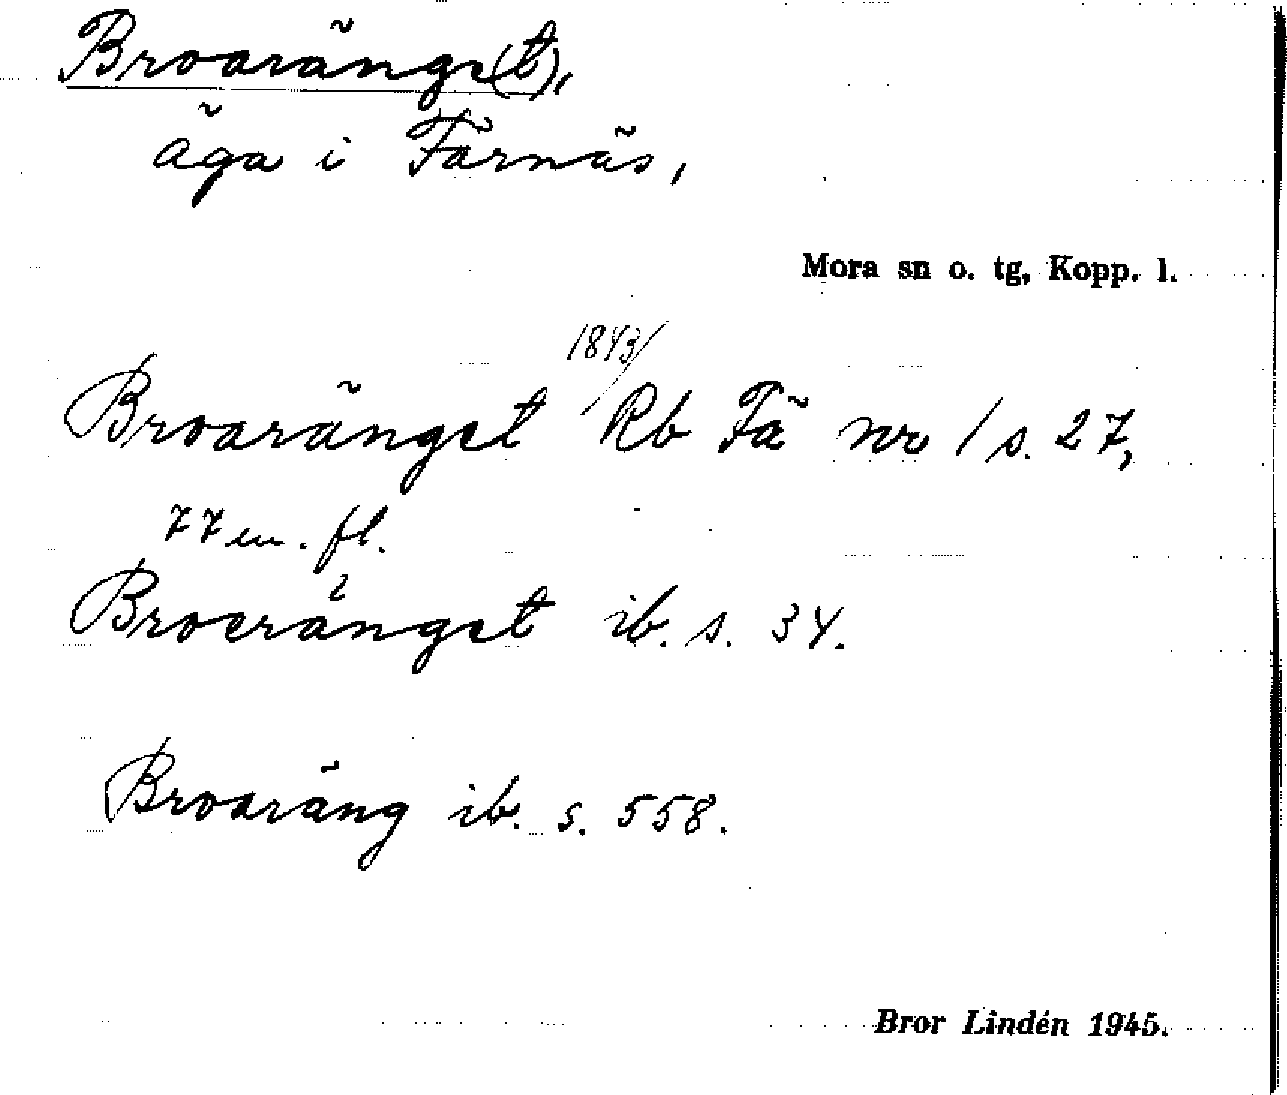 Broaränge(t),
äga i Färnäs,
Mora sn o. tg, Kopp. l.
1843/
Broaränget Rb Fä nr 1 s. 27,
77 m. fl.
Broeränget ib. s. 34.
Broaräng ib. s. 558.
Bror Lindén 1945.